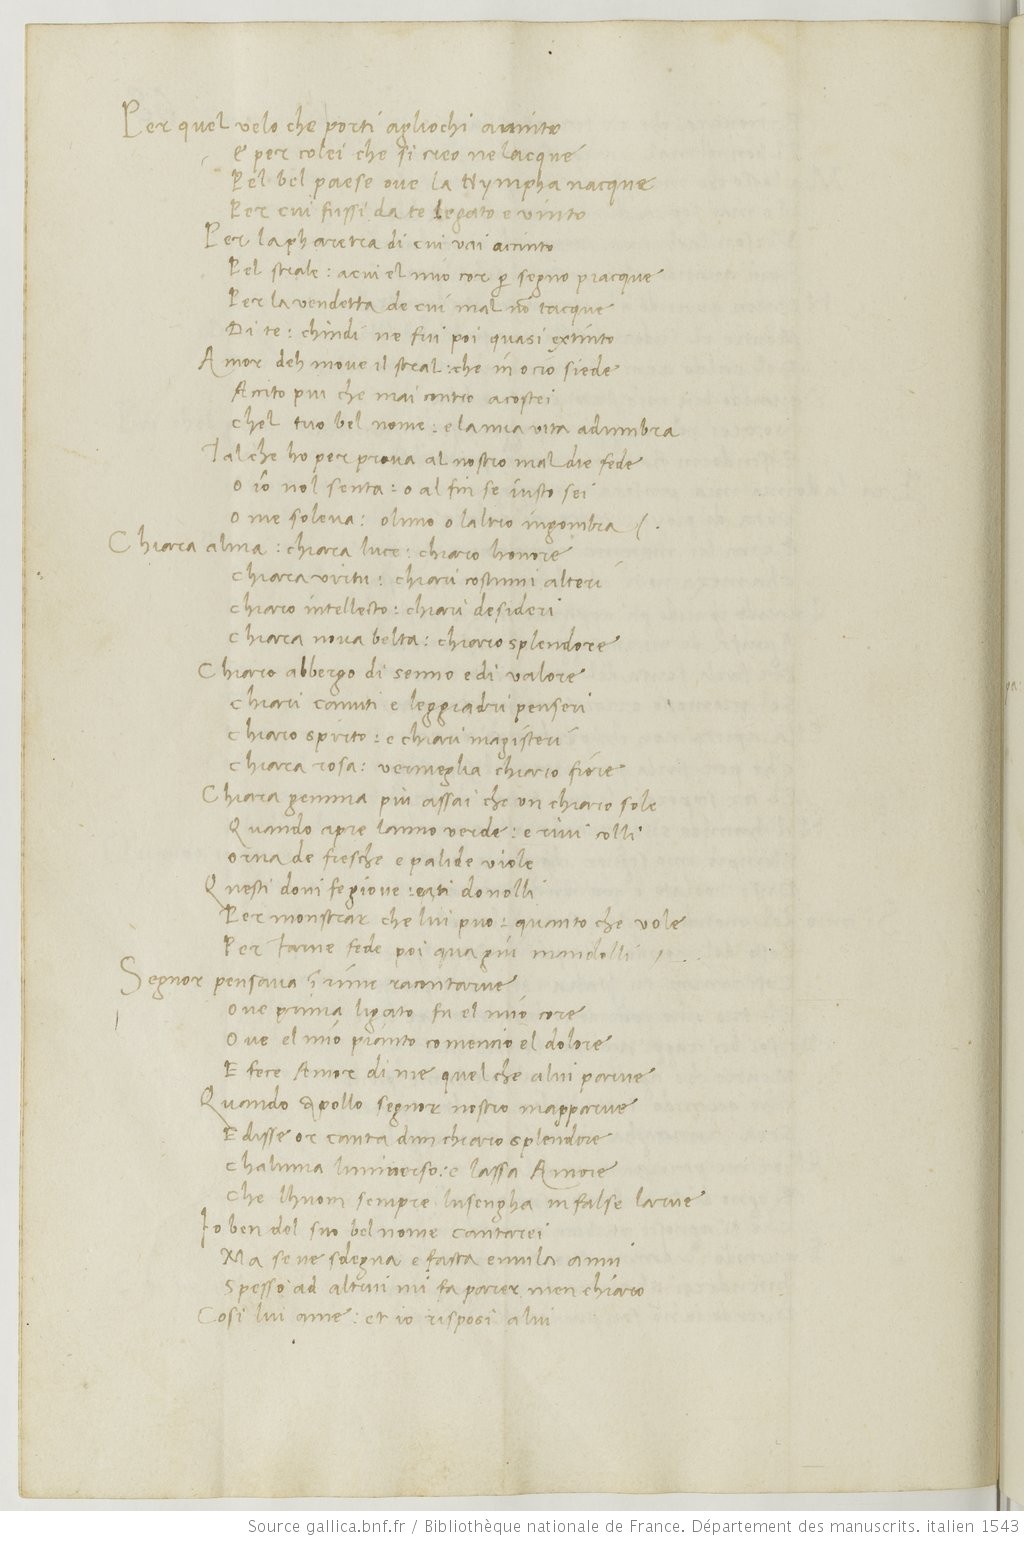 Per quel velo che porti agliochi avinto
E per colei che si creo nelacque
Pel bel paese ove la Nympha nacque
Per cui fussi da te legato e vinto
Per la pharetra di cui vai accinto
Pel strale : acui el mio cor ꝑ segno piacque
Per la vendetta de cui mal nō tacque
Di te : chindi ne fui poi quasi extinto
Amor deh move il stral : che in ocio siede
Accito piu che mai contro acostei
chel tuo bel nome : e la mia vita adumbra
Tal che ho per prova al nostro mal die fede
O iō nol senta : o al fin se iusto sei
O me soleva : oluno o laltro ingombra
Chiara alma : chiara luce : chiaro honore
chiara virtu : chiari costumi alteri
chiaro intellecto : chiari desideri
chiara nova belta : chiaro splendore
Chiaro albergo di senno e di valore
chiari canuti e leggiadri penseri
chiaro spirito : e chiari magisteri
chiara rosa : vermeglia chiaro fiore
Chiara gemma più assai che un chiaro sole
Quando apre lanno verde : e rivi colli
orna de fresche e palide viole
Questi doni fe giove : et ti donolli
Per monstrar che lui puo : quanto che vole
Per farne fede poi qua giù mandolli
Segnor pensava ī rime racontarve
Ove prima ligato fu el mio core
Ove el mio pianto comencio el dolore
E fece Amor di me quel che alui parve
Quando Apollo segnor nostro mapparve
E disse or canta dun chiaro splendore
chaluma luniverso : e lassa Amore
Che lhuom sempre lusengha in false larve
Io ben del suo bel nome cantarei
Ma se ne sdegna e fasta emula a mii
Spesso ad altrui mi fa parer men chiaro
Cosi lui ame : et io risposi a lui
Source gallica.bnf.fr / Bibliothèque nationale de France. Département des manuscrits. italien 1543